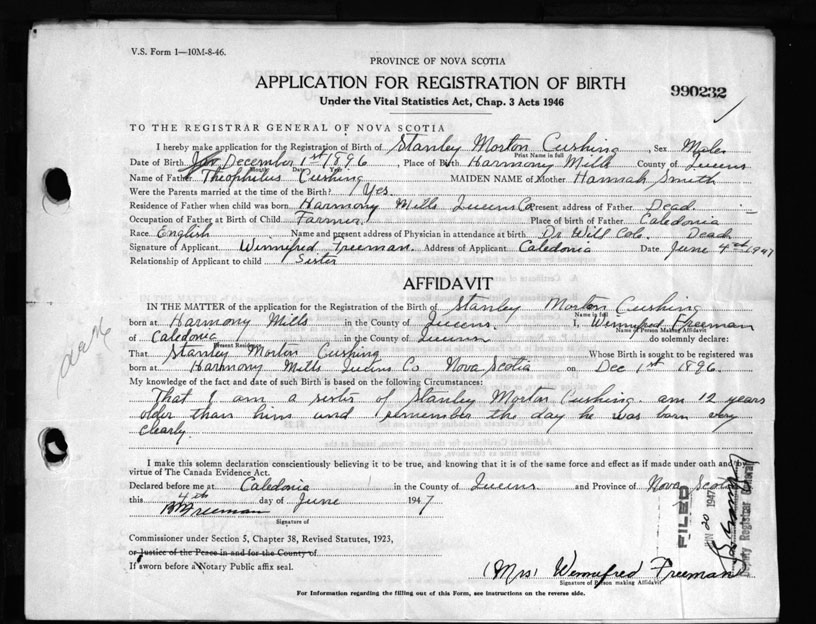 V.S. Form 1—10M-8-46.
PROVINCE OF NOVA SCOTIA
APPLICATION FOR REGISTRATION OF BIRTH
990232
Under the Vital Statistics Act, Chap. 3 Acts 1946
TO THE REGISTRAR GENERAL OF NOVA SCOTIA
I hereby make application for the Registration of Birth of Stanley Morton Cushing, Sex Male
Print Name in full
Date of Birth December 1st 1896, Place of Birth Harmony Mills County of Queens
Month Day Year
Name of Father Theophilus Cushing MAIDEN NAME of Mother Hannah Smith
Were the Parents married at the time of the Birth? Yes.
Residence of Father when child was born Harmony Mills Queens Co Present address of Father Dead.
Occupation of Father at Birth of Child Farmer Place of birth of Father Caledonia
Race English Name and present address of Physician in attendance at birth Dr Will Cole. Dead
Signature of Applicant Winnifred Freeman. Address of Applicant Caledonia Date June 4th 1947
Relationship of Applicant to child Sister
AFFIDAVIT
IN THE MATTER of the application for the Registration of the Birth of Stanley Morton Cushing
Name in full
born at Harmony Mills in the County of Queens. I, Winnifred Freeman
Name of Person Making Affidavit
of Caledonia in the County of Queens do solemnly declare:
Present Residence
That Stanley Morton Cushing Whose Birth is sought to be registered was
born at Harmony Mills Queens Co Nova Scotia on Dec 1st 1896.
My knowledge of the fact and date of such Birth is based on the following Circumstances:
That I am a sister of Stanley Morton Cushing am 12 years
older than him and remember the day he was born very
clearly.
I make this solemn declaration conscientiously believing it to be true, and knowing that it is of the same force and effect as if made under oath and by
virtue of The Canada Evidence Act.
Declared before me at Caledonia in the County of Queens and Province of Nova Scotia
this 4th day of June 1947
Freeman
Signature of
Commissioner under Section 5, Chapter 38, Revised Statutes, 1923,
or Justice of the Peace in and for the County of
If sworn before a Notary Public affix seal.
(Mrs) Winnifred Freeman
Signature of Person making Affidavit
For Information regarding the filling out of this Form, see instructions on the reverse side.
FILED
20 1947
Deputy Registrar General